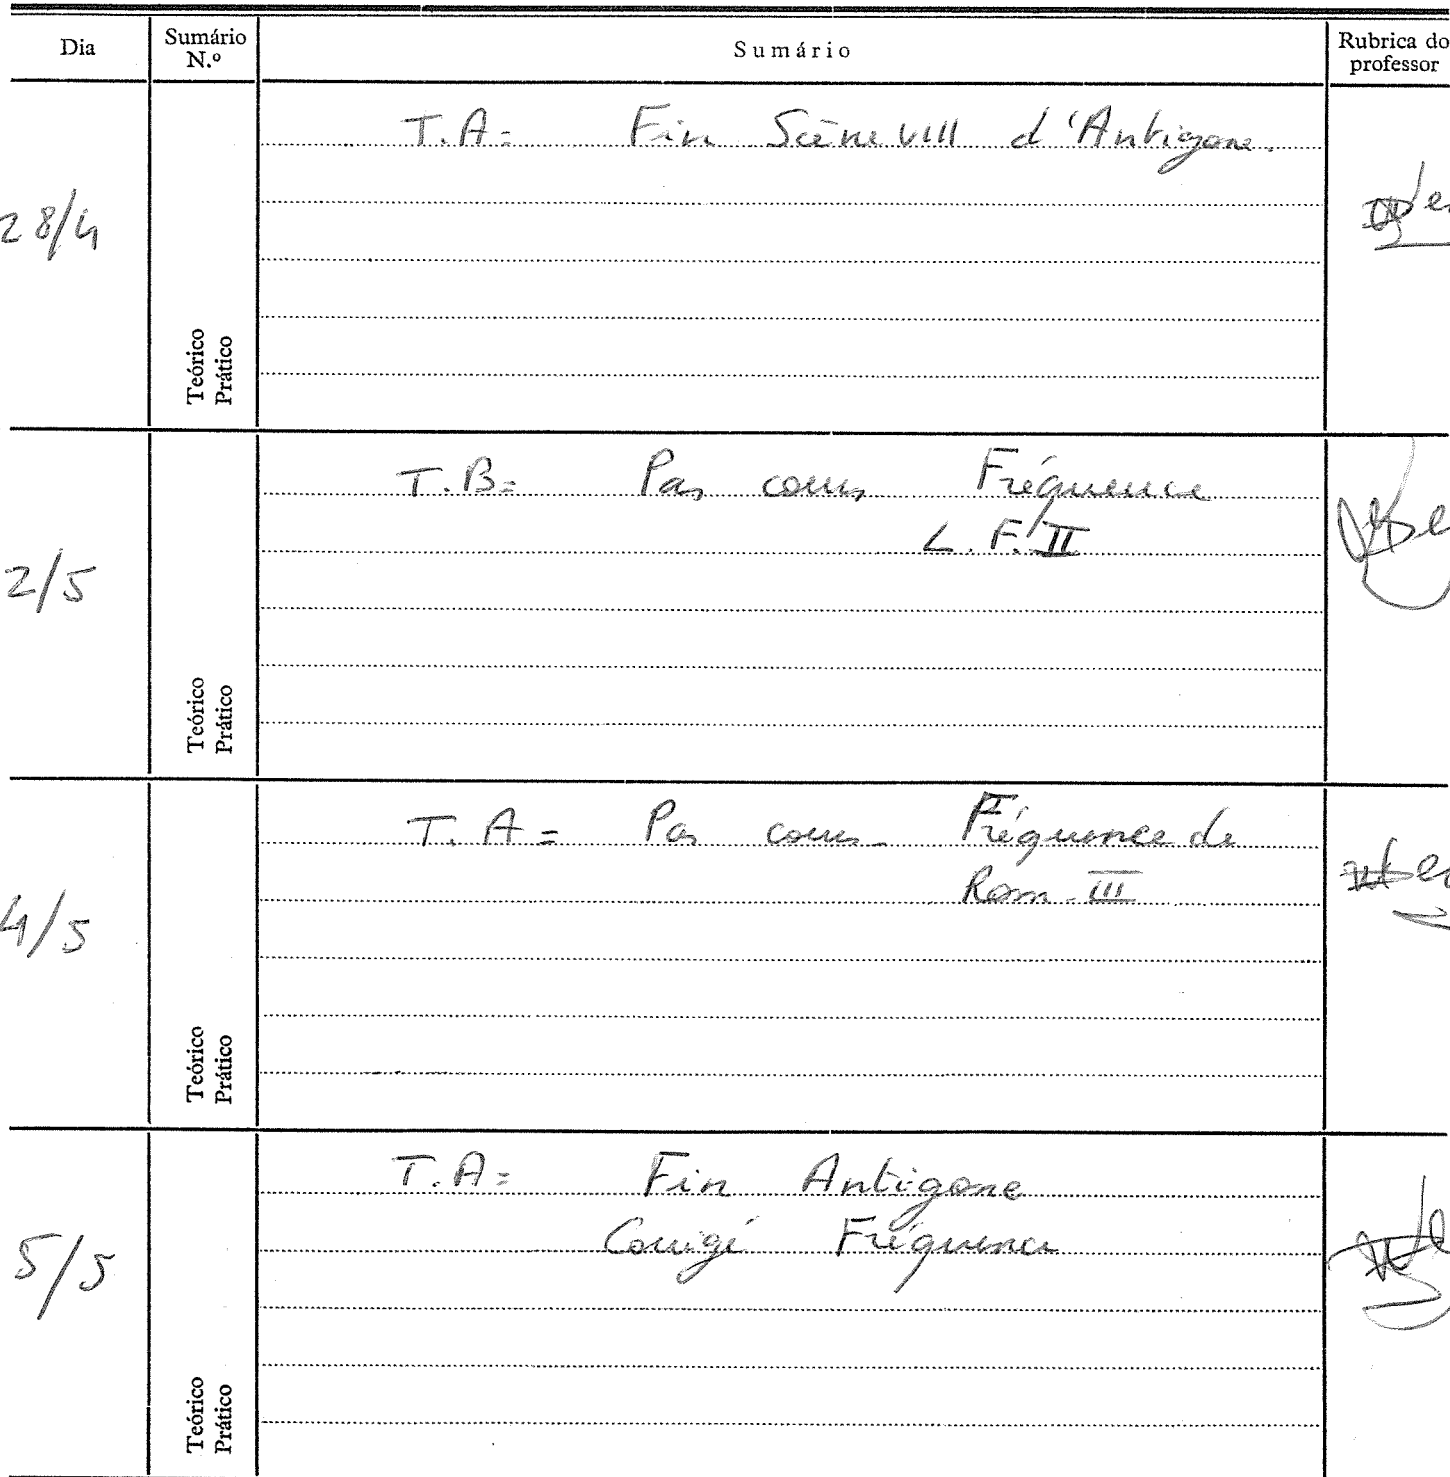 Dia
Sumário N.º
Sumário
Rubrica do professor
28/4
Teórico Prático
T.A= Fin Scène VIII d'Antigone.
2/5
Teórico Prático
T.B= Pas cours Fréquence
L.F. II
4/5
Teórico Prático
T.A= Pas cours - Fréquence de
Rom. III
5/5
Teórico Prático
T.A= Fin Antigone
Corrigé Fréquence